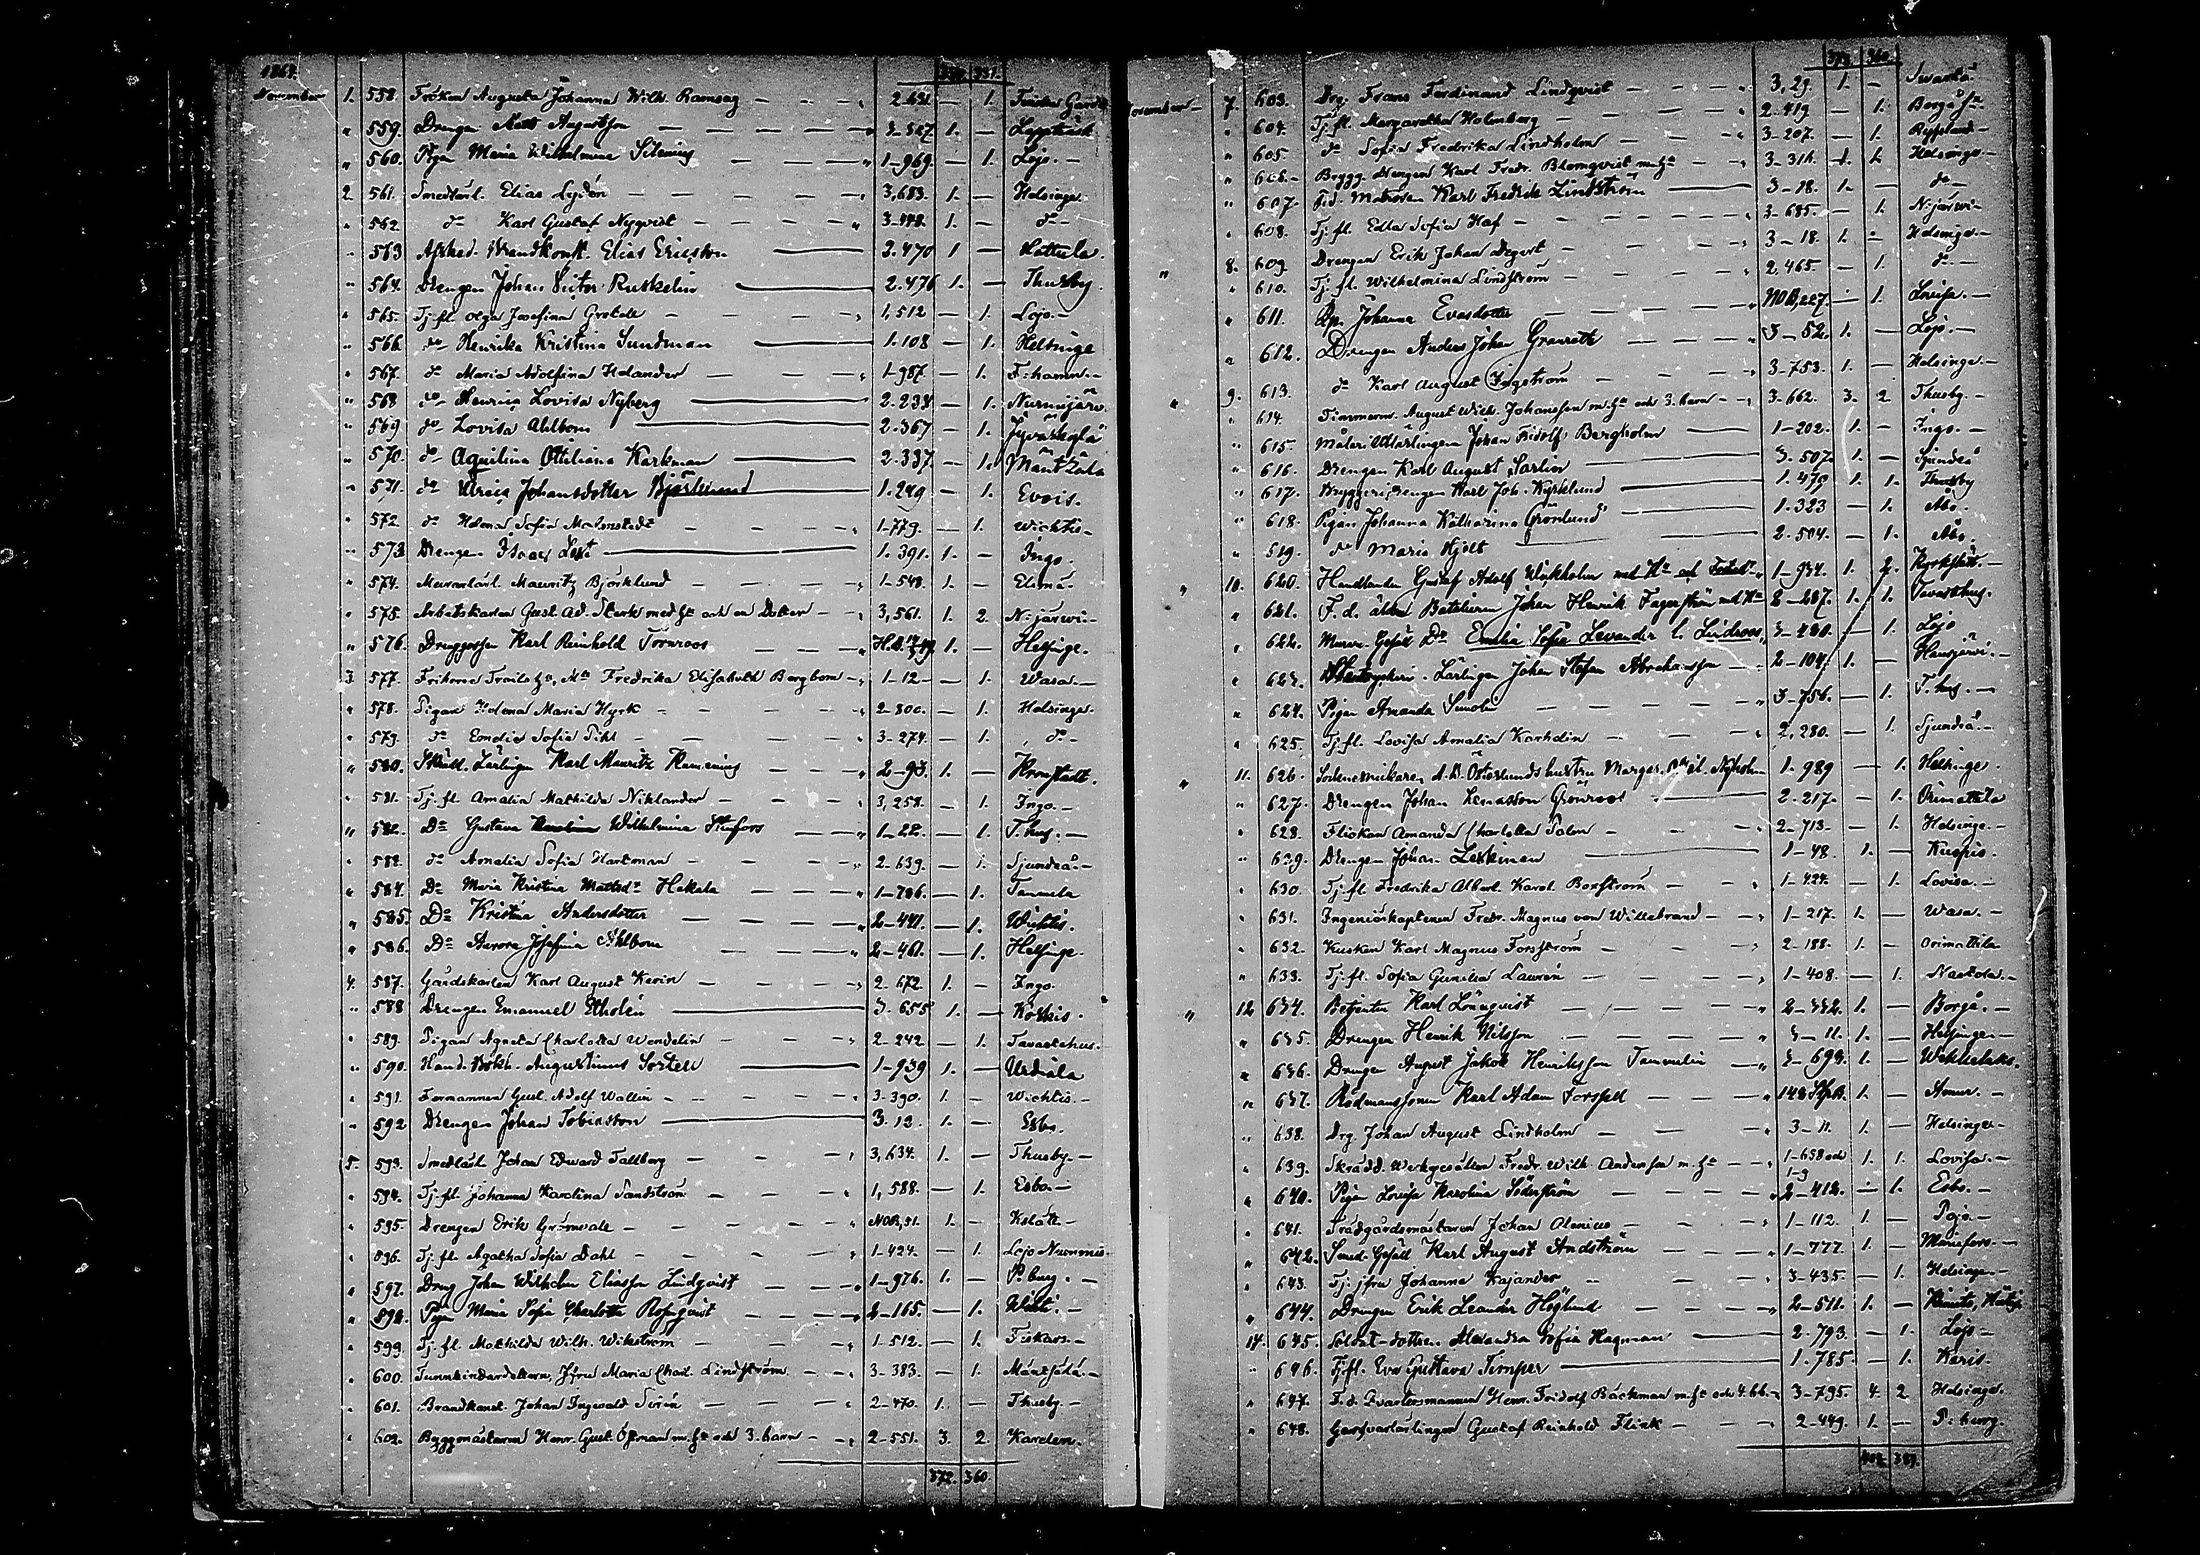 1869.
November 1. 558. Fröken Augusta Johanna Wilh. Ramsay — — „ 2.631 — 1.
„ 559. Drengen Matts August — — — — „ 3-327 1. — Lappträsk
„ 560. Pigan Maria Wilhelmina — — — „ 1-969. — 1. Lojo. —
2. 561. Smedlärl. Elias Lydén — — — — „ 3,683. 1. — Helsinge.
„ 562. do Karl Gustaf Nyqvist — — — — „ 3-448. 1. — do —
„ 563. Afsked. Brandkonst. Elias Ericsson — 3.470 1 — Hattula
„ 564. Drengen Johan Victor Ruskelin — 2.476 1. — Thusby.
„ 565. Tj. fl. Olga Josefina — — — „ 1,512 — 1. Lojo. —
„ 566. do Henrika Kristina Sundman — 1.108 — 1. Helsinge
„ 567. do Maria Adolfina Helander — — — „ 1-987. — 1. F:hamn. —
„ 568. do Henrica Lovisa Nyberg — 2.238 — 1. Nurmijärvi
„ 569. do Lovisa Ahlbom — 2.367 — 1. Jyväskylä
„ 570. do Aquilina Ottiliana Karkman — 2.337. — 1. Mäntzälä
„ 571. do Ulrica Johansdotter Björklund — 1.249 — 1. Evois.
„ 572. do Helena Sofia Malmstedt — — — — „ 1-779. — 1. Wichtis —
„ 573. Drengen Isaac — 1.391. 1. — Ingo.
„ 574. Murarlärl. Mauritz Björklund — — — — „ 1-548. 1. — Elimä. —
„ 575. Arbetskarlen Gust. Ad. Stark med hu och en Dotter — „ 3,561. 1. 2. N:järvi. —
„ 576. Drenggossen Karl Reinhold Törnroos — — — „ 1. — Helsinge.
3. 577. Fredrika Elisabeth Bergbom — „ 1-12 — 1. Wasa. —
„ 578. Pigan Helena Maria Hyrk — — — „ 2-800. — 1. Helsinge.
„ 579. do Emelie Sofia Pihl — — — — „ 3-274. — 1. do —
„ 580. Lärlingen Karl Mauritz — — „ 2-93. 1. — Kronstadt.
„ 581. Tj. fl. Amalia Mathilda Niklander — — — „ 3,258. — 1. Ingo. —
„ 582. Do Gustava Wilhelmina Stenfors — — „ 1-22. — 1. T:hus. —
„ 583. do Amalia Sofia Hartman — — — — „ 2-639. — 1. Sjundeå. —
„ 584. Do Maria Kristina Mattsdr Hakala — — — „ 1-786. — 1. Tammela
„ 585. Do Kristina Andersdotter — — — — „ 2-441. — 1. Wichtis.
„ 586. Do Aurora Josefina Ahlbom — — — — „ 2-461. — 1. Helsinge.
4. 587. Gårdskarlen Karl August Kevin — — — „ 2-672 1. — Ingo.
„ 588. Drengen Emanuel Etholén — 3.655 1. — Koskis.
„ 589. Pigan Agneta Charlotta Wendelin — — — „ 2-242 — 1. Tavastehus.
„ 590. Hand. Bokh. Augustinus — 1-939 1. — Urdiala
„ 591. Formannen Gust. Adolf Wallin — — — — „ 3-390. 1. — Wichtis. —
„ 592. Drengen Johan Tobiasson — 3.12. 1. — Esbo.
5. 593. Smedlärl. Johan Edward Tallberg — — — — „ 3,634. 1. — Thusby. —
„ 594. Tj. fl. Johanna Karolina Sandström — — — „ 1,588. — 1. Esbo. —
„ 595. Drengen Erik Grönvall — — — — „ NOB,51. 1. — K:slätt. —
„ 596. Tj. fl. Agatha Sofia Dahl — — — — „ 1-424. — 1. Lojo Nummis.
„ 597. Dreng Johan Wilhelm Eliasson Lindqvist — — „ 1-976. 1. — P:burg. —
„ 598. Pigan Maria Sofia Charlotta Rosenqvist — — „ 2-165. — 1. Wichti. —
„ 599. Tj. fl. Mathilda Wilh. Wikström — — — „ 1-512. — 1. Fiskars. —
„ 600. Tunnbindardottern, Jfru Maria Charl. Lindström — — „ 3-383. — 1. Mäntsälä. —
„ 601. Brandkonst. Johan Ingevald Sirén — — — — „ 2-470. 1. — Thusby. —
„ 602. Byggmästaren Henr. Gust. Öhman m. hu och 3. barn — „ 2-551. 3. 2. Karelen.
372. 360.
372. 360.
November — 7. 603. Drg. Frans Ferdinand Lindqvist — — — — „ 3,29. 1. — Svartå
„ 604. Tj. fl. Margaretha Holmberg — — — — „ 2-419 — 1. Borgå
„ 605. do Sofia Fredrika Lindholm — — — „ 3-207. — 1.
„ 606. Brygg. Drengen Karl Fredr. Blomqvist m. hu — „ 3-316. 1. 1. Helsinge —
„ 607. Matrosen Karl Fredrik Lindström — 3-18. 1. — do —
„ 608. Tj. fl. Edla Sofia Haf — — — — „ 3-685. — 1. N:järvi —
8. 609. Drengen Erik Johan Degert — — — — „ 3-18. 1. — Helsinge. —
„ 610. Tj. fl. Wilhelmina Lindström — — — — „ 2,465. — 1. do —
„ 611. Pig. Johanna Evasdotter — — — — „ NOB,227. — 1. Lovisa. —
„ 612. Drengen Anders Johan Granroth — — — „ 3-52. 1. — Lojo. —
9. 613. do Karl August Ingström — — — „ 3-753. 1. — Helsinge. —
„ 614. Timmerm. August Wilh. Johansson m. hu och 3. barn — „ 3-662. 3. 2. Thusby. —
„ 615. Måleri Lärlingen Johan Fridolf Bergholm — 1-202. 1. — Ingo. —
„ 616. Drengen Karl August Sarlin — 3.507. 1. — Sjundeå
„ 617. Bryggeridrengen Karl Joh. Kyrklund — 1.479 1. 1. Thusby
„ 618. Pigan Johanna Katharina Grönlund — 1.323 — 1. Åbo.
„ 519. do Maria Hjelt — 2.504. — 1. Åbo.
10. 620. Handlanden Gustaf Adolf Wickholm med Hu och „ 1-934. 1. 2. Kyrkslätt. —
„ 621. F. d. Johan Henrik Fagerström med Hu 2-287. 1. 1. Tavasthus.
„ 622. Murare Gesäll Dr. Emelia Sofia Levander f. Lindroos „ 3-280. — 1. Lojo
„ 623. Lärlingen Johan Stefan Abrahamsson — „ 2-104. 1. — Hausjärvi. —
„ 624. Pigan Amanda — — — — „ 3-756. — 1. T:hus. —
„ 625. Tj. fl. Lovisa Amalia Karhdin — — — — „ 2,280. — 1. Sjundeå. —
11. 626. Österlunds hustru Margar. Nyholm 1.989 — 1. Helsinge.
„ 627. Drengen Johan Grönroos — 2.217. — 1. Orimattila
„ 628. Flickan Amanda Charlotta Palm — — — — „ 2-713. — 1. Helsinge. —
„ 629. Drengen Johan Leskinen — 1-48. 1. — Kuopio.
„ 630. Tj. fl. Fredrika Albert. Karol. Boxström — — „ 1-424. — 1. Lovisa. —
„ 631. Ingeniörkaptenen Fredr. Magnus von Willebrand — — „ 1-217. 1. — Wasa. —
„ 632. Kusken Karl Magnus Forsström — — — „ 2-188. 1. — Orimattila
„ 633. Tj. fl. Sofia Gunilla Laurén — — — — „ 1-408. — 1. Nastola. —
12. 634. Betjenten Karl Lönnqvist — — — — „ 2-332. 1. — Borgå. —
„ 635. Drengen Henrik Nilsson — — — — „ 3-11. 1. — Helsinge. —
„ 636. Drengen August Jakob Henriksson Tammelin — „ 3-693. 1. —
„ 637. Rådmanssonen Karl Adam Forssell — — — „ 1. — Åmin. —
„ 638. Drg. Johan August Lindholm — — — — „ 3-11. 1. — Helsinge. —
„ 639. Skrädd. Werkgesällen Fredr. Wilh. Andersson m. hu — „ 1-658 och 1-3 1. 1. Lovisa. —
„ 640. Pigan Lovisa Karolina Söderström — — — — „ 2-412. — 1. Esbo. —
„ 641. Trädgårdsmästaren Johan Alenius — — — „ 1-112. 1. — Pojo. —
„ 642. Smed-Gesäll Karl August Andström — — — „ 1-777. 1. — Månsfors. —
„ 643. Tj: jfru Johanna Kajander — — — — „ 3-435. — 1. Helsinge. —
„ 644. Drengen Erik Leander Höglund — — — — „ 2-511. 1. — Kimito,
14. 645. Soldat-dottren Alexandra Sofia Hagman — 2.793. — 1. Lojo —
„ 646. Tj. fl. Eva Gustava Timper — 1.785. — 1. Karis.
„ 647. F. d. Qvartersmannen Henr. Fridolf Bäckman m. hu och 4. bb. — 3-795. 4. 2 Helsinge.
„ 648. Garfvarlärlingen Gustaf Reinhold Flink — — — „ 2-449. 1. — P:burg.